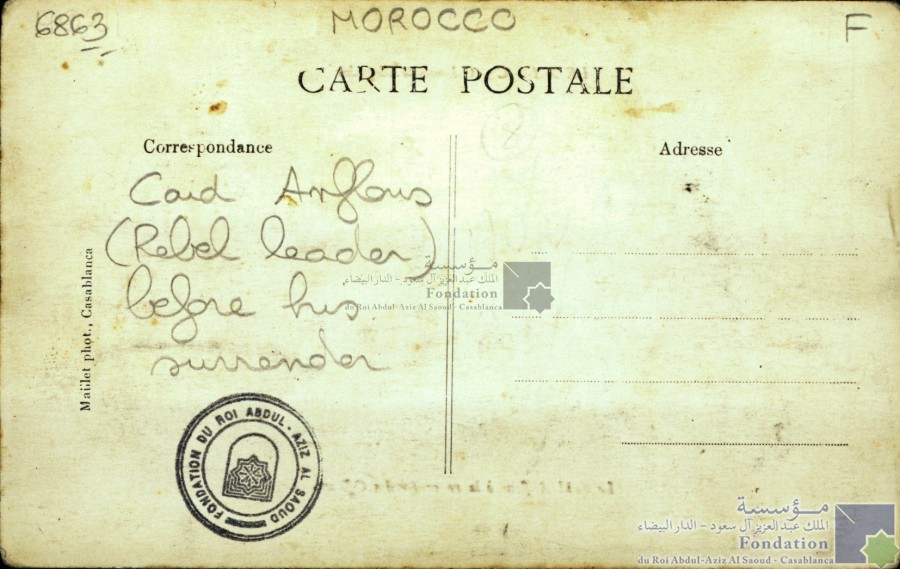 6863
MOROCCO
F
CARTE POSTALE
8
Correspondance
Adresse
Caid Anflous
(Rebel leader)
before his
surrender
Maillet phot., Casablanca
مؤسسة
الملك عبد العزيز آل سعود - الدار البيضاء
Fondation
du Roi Abdul-Aziz Al Saoud - Casablanca
FONDATION DU ROI ABDUL-AZIZ AL SAOUD
مؤسسة
الملك عبد العزيز آل سعود - الدار البيضاء
Fondation
du Roi Abdul-Aziz Al Saoud - Casablanca